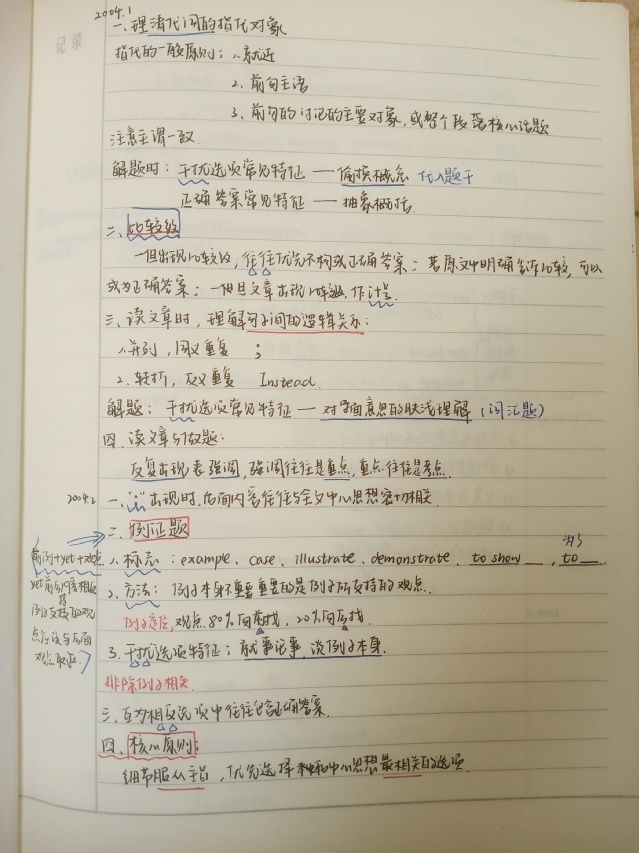 记录
2004.1
一、理清代词的指代对象
指代的一般原则：1、就近
2、前句主语
3、前句的讨论的主要对象，或整个段落核心话题
注意主谓一致.
解题时：干扰选项常见特征——偷换概念 代入题干
正确答案常见特征——抽象概括.
二、比较级
一但出现比较级，往往优先不构成正确答案；若原文中明确告诉比较，可以
成为正确答案；一但文章出现比较级，作
三、读文章时，理解句子间的逻辑关系：
1、并列，同义重复 ；
2、转折，反义重复 Instead.
解题：干扰选项常见特征——对字面意思的肤浅理解（词汇题）
四、读文章与做题：
反复出现表强调，强调往往是重点，重点往往是考点.
2004.2
一、"：" 出现时，后面内容往往与全文中心思想密切相关.
二、例证题
前例+yet+观点
1、标志：example、case、illustrate、demonstrate、to show __，to __.
yet前后内容相反
2、方法：例子本身不重要重要的是例子所支持的观点.
例子支持的观
例子定位，观点80%向前找，20%向后找.
点应该与后面
观点取反.
3、干扰选项特征：就事论事，谈例子本身.
排除例子相关.
三、互为相反选项中往往包含正确答案.
四、核心原则：
细节服从主旨，优先选择和中心思想最相关的选项.